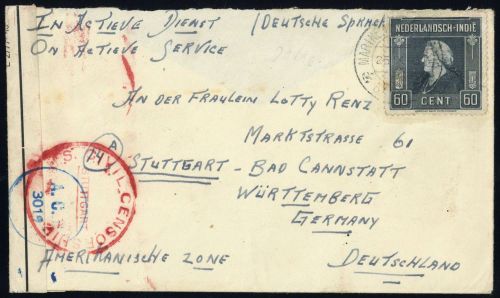 In Actieve Dienst /Deutsche Sprach
On Active Service
NEDERLANDSCH-INDIË
60 CENT 60
An der Fraulein Lotty Renz
Marktstrasse 61
A
14
Stuttgart - Bad Cannstatt
Württemberg
Germany
CIVIL CENSORSHIP
A.C.
3019
Amerikanische Zone Deutschland